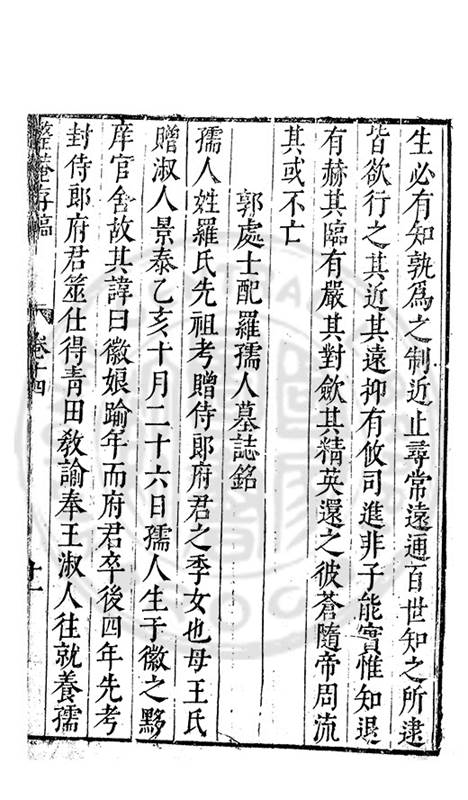 生必有知孰爲之制近止尋常遠通百世知之所逮
皆欲行之其近其遠抑有攸司進非子能實惟知退
有赫其臨有嚴其對斂其精英還之彼蒼隨帝周流
其或不亡
郭處士配羅孺人墓誌銘
孺人姓羅氏先祖考贈侍郎府君之季女也母王氏
贈淑人景泰乙亥十月二十六日孺人生于徽之黟
庠官舍故其諱曰徽娘踰年而府君卒後四年先考
封侍郎府君筮仕得青田教諭奉王淑人往就養孺
整菴存稿
卷十四
十一